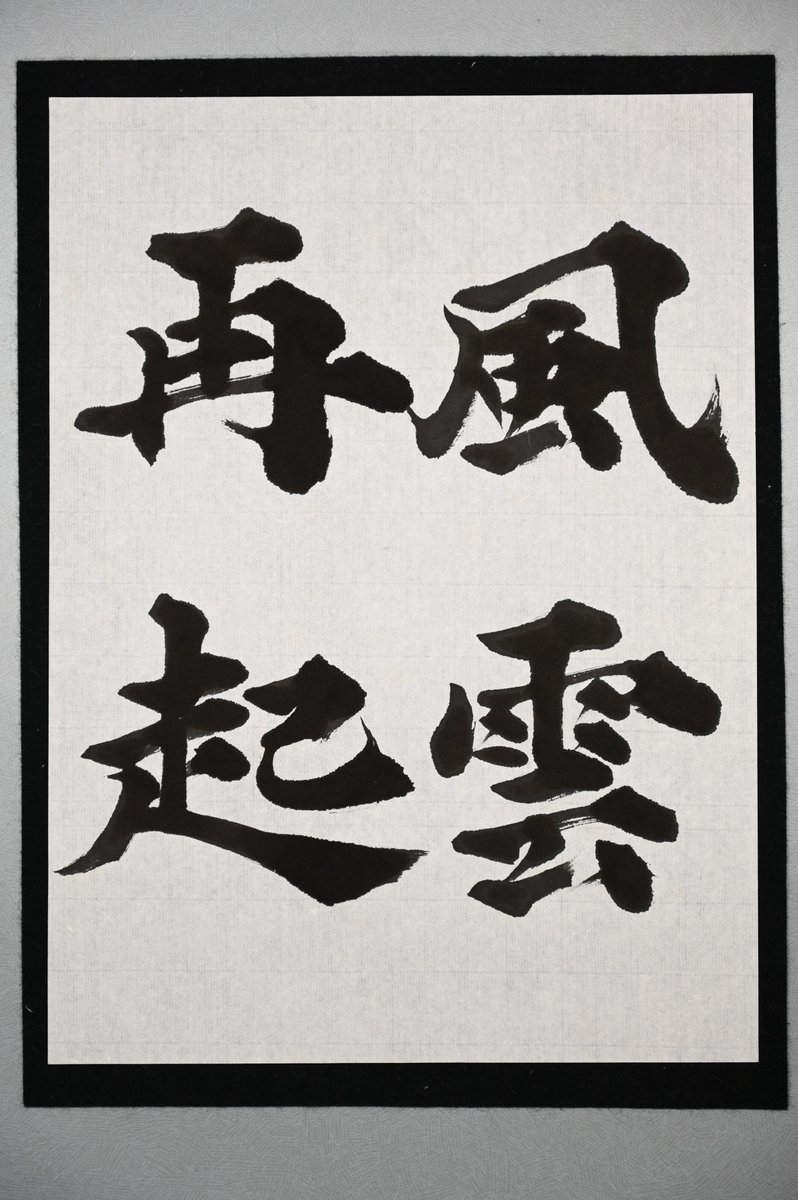 風雲
再起